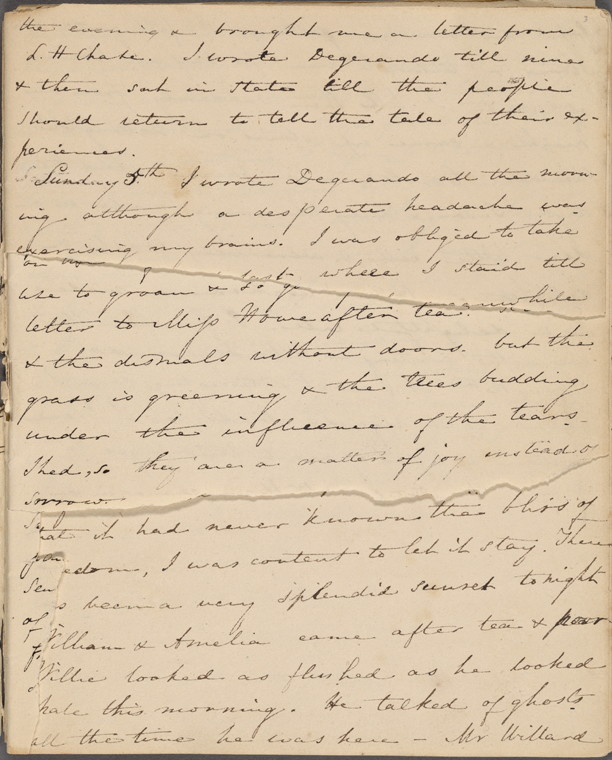 the evening & brought me a letter from
L. H Chase. I wrote Degerando till nine
& then sat in state till the people
should return to tell the tale of their ex-
periences.
Sunday 5th I wrote Degerando all the morn-
ing although a desperate headache was
exercising my brains. I was obliged to take
last where I staid till
use to groan & to
meanwhile
letter to Miss Howe after tea.
& the dismals without doors. but the
grass is greening & the trees budding
under the influence of the tears
shed, so they are a matter of joy instead o
sorrow.
that it had never known the bliss of
eedom, I was content to let it stay. There
s been a very splendid sunset tonight
William & Amelia came after tea & poor
Willie looked as flushed as he looked
pale this morning. He talked of ghosts
all the time he was here - Mr Willard